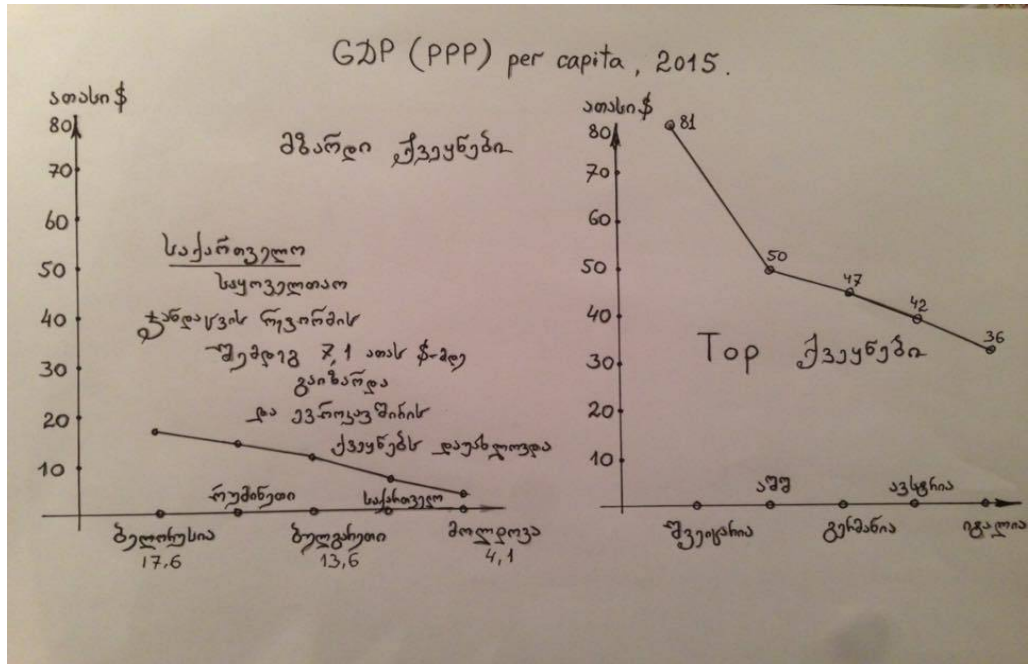 GDP (PPP) per capita, 2015.
ათასი $
80
70
60
50
40
30
20
10
მზარდი ქვეყნები
საქართველო
საყოველთაო
ჯანდაცვის რეფორმის
შემდეგ 7,1 ათას $-მდე
გაიზარდა
და ევროკავშირის
ქვეყნებს დაუახლოვდა
რუმინეთი საქართველო
ბელორუსია ბულგარეთი მოლდოვა
17,6 13,6 4,1
ათასი $
80
70
60
50
40
30
20
10
81
50
47
42
36
Top ქვეყნები
აშშ ავსტრია
შვეიცარია გერმანია იტალია